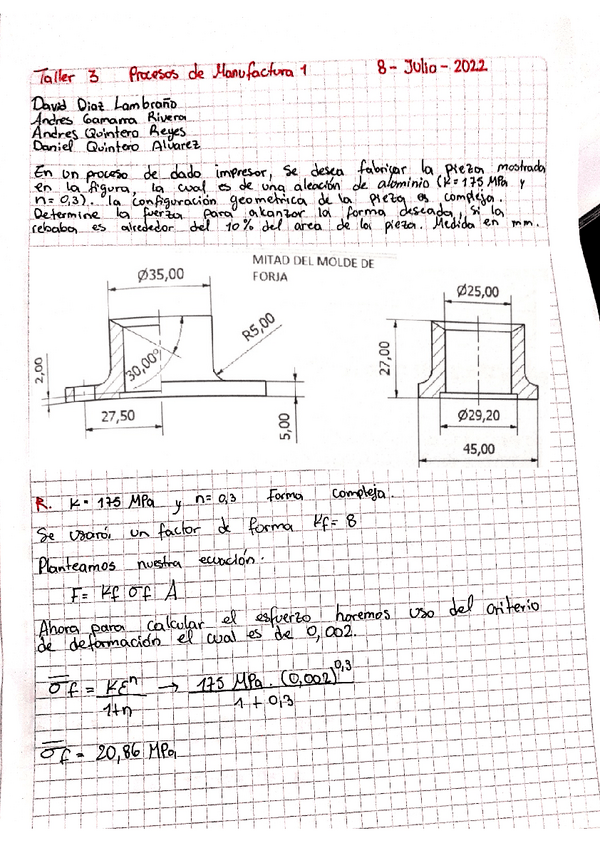 Taller 3 Procesos de Manufactura 1 8 - Julio - 2022
David Diaz Lambraño
Andres Gamarra Rivera
Andres Quintero Reyes
Daniel Quintero Alvarez
En un proceso de dado impresor, se desea fabricar la pieza mostrada
en la figura, la cual es de una aleación de aluminio (K=175 MPa y
n=0,3). la configuración geometrica de la pieza es compleja.
Determine la fuerza para alcanzar la forma deseada, si la
rebaba es alrededor del 10% del area de la pieza. Medida en mm.
MITAD DEL MOLDE DE
FORJA
Ø35,00
R5,00
30,00°
2,00
27,50
5,00
Ø25,00
27,00
Ø29,20
45,00
R. K= 175 MPa y n= 0,3 Forma compleja.
Se usará un factor de forma Kf= 8
Planteamos nuestra ecuación:
F= Kf σf A
Ahora para calcular el esfuerzo haremos uso del criterio
de deformación el cual es de 0,002.
σ̅f = Kεⁿ/1+n → 175 MPa . (0,002)^0,3/1 + 0,3
σ̅f = 20,86 MPa